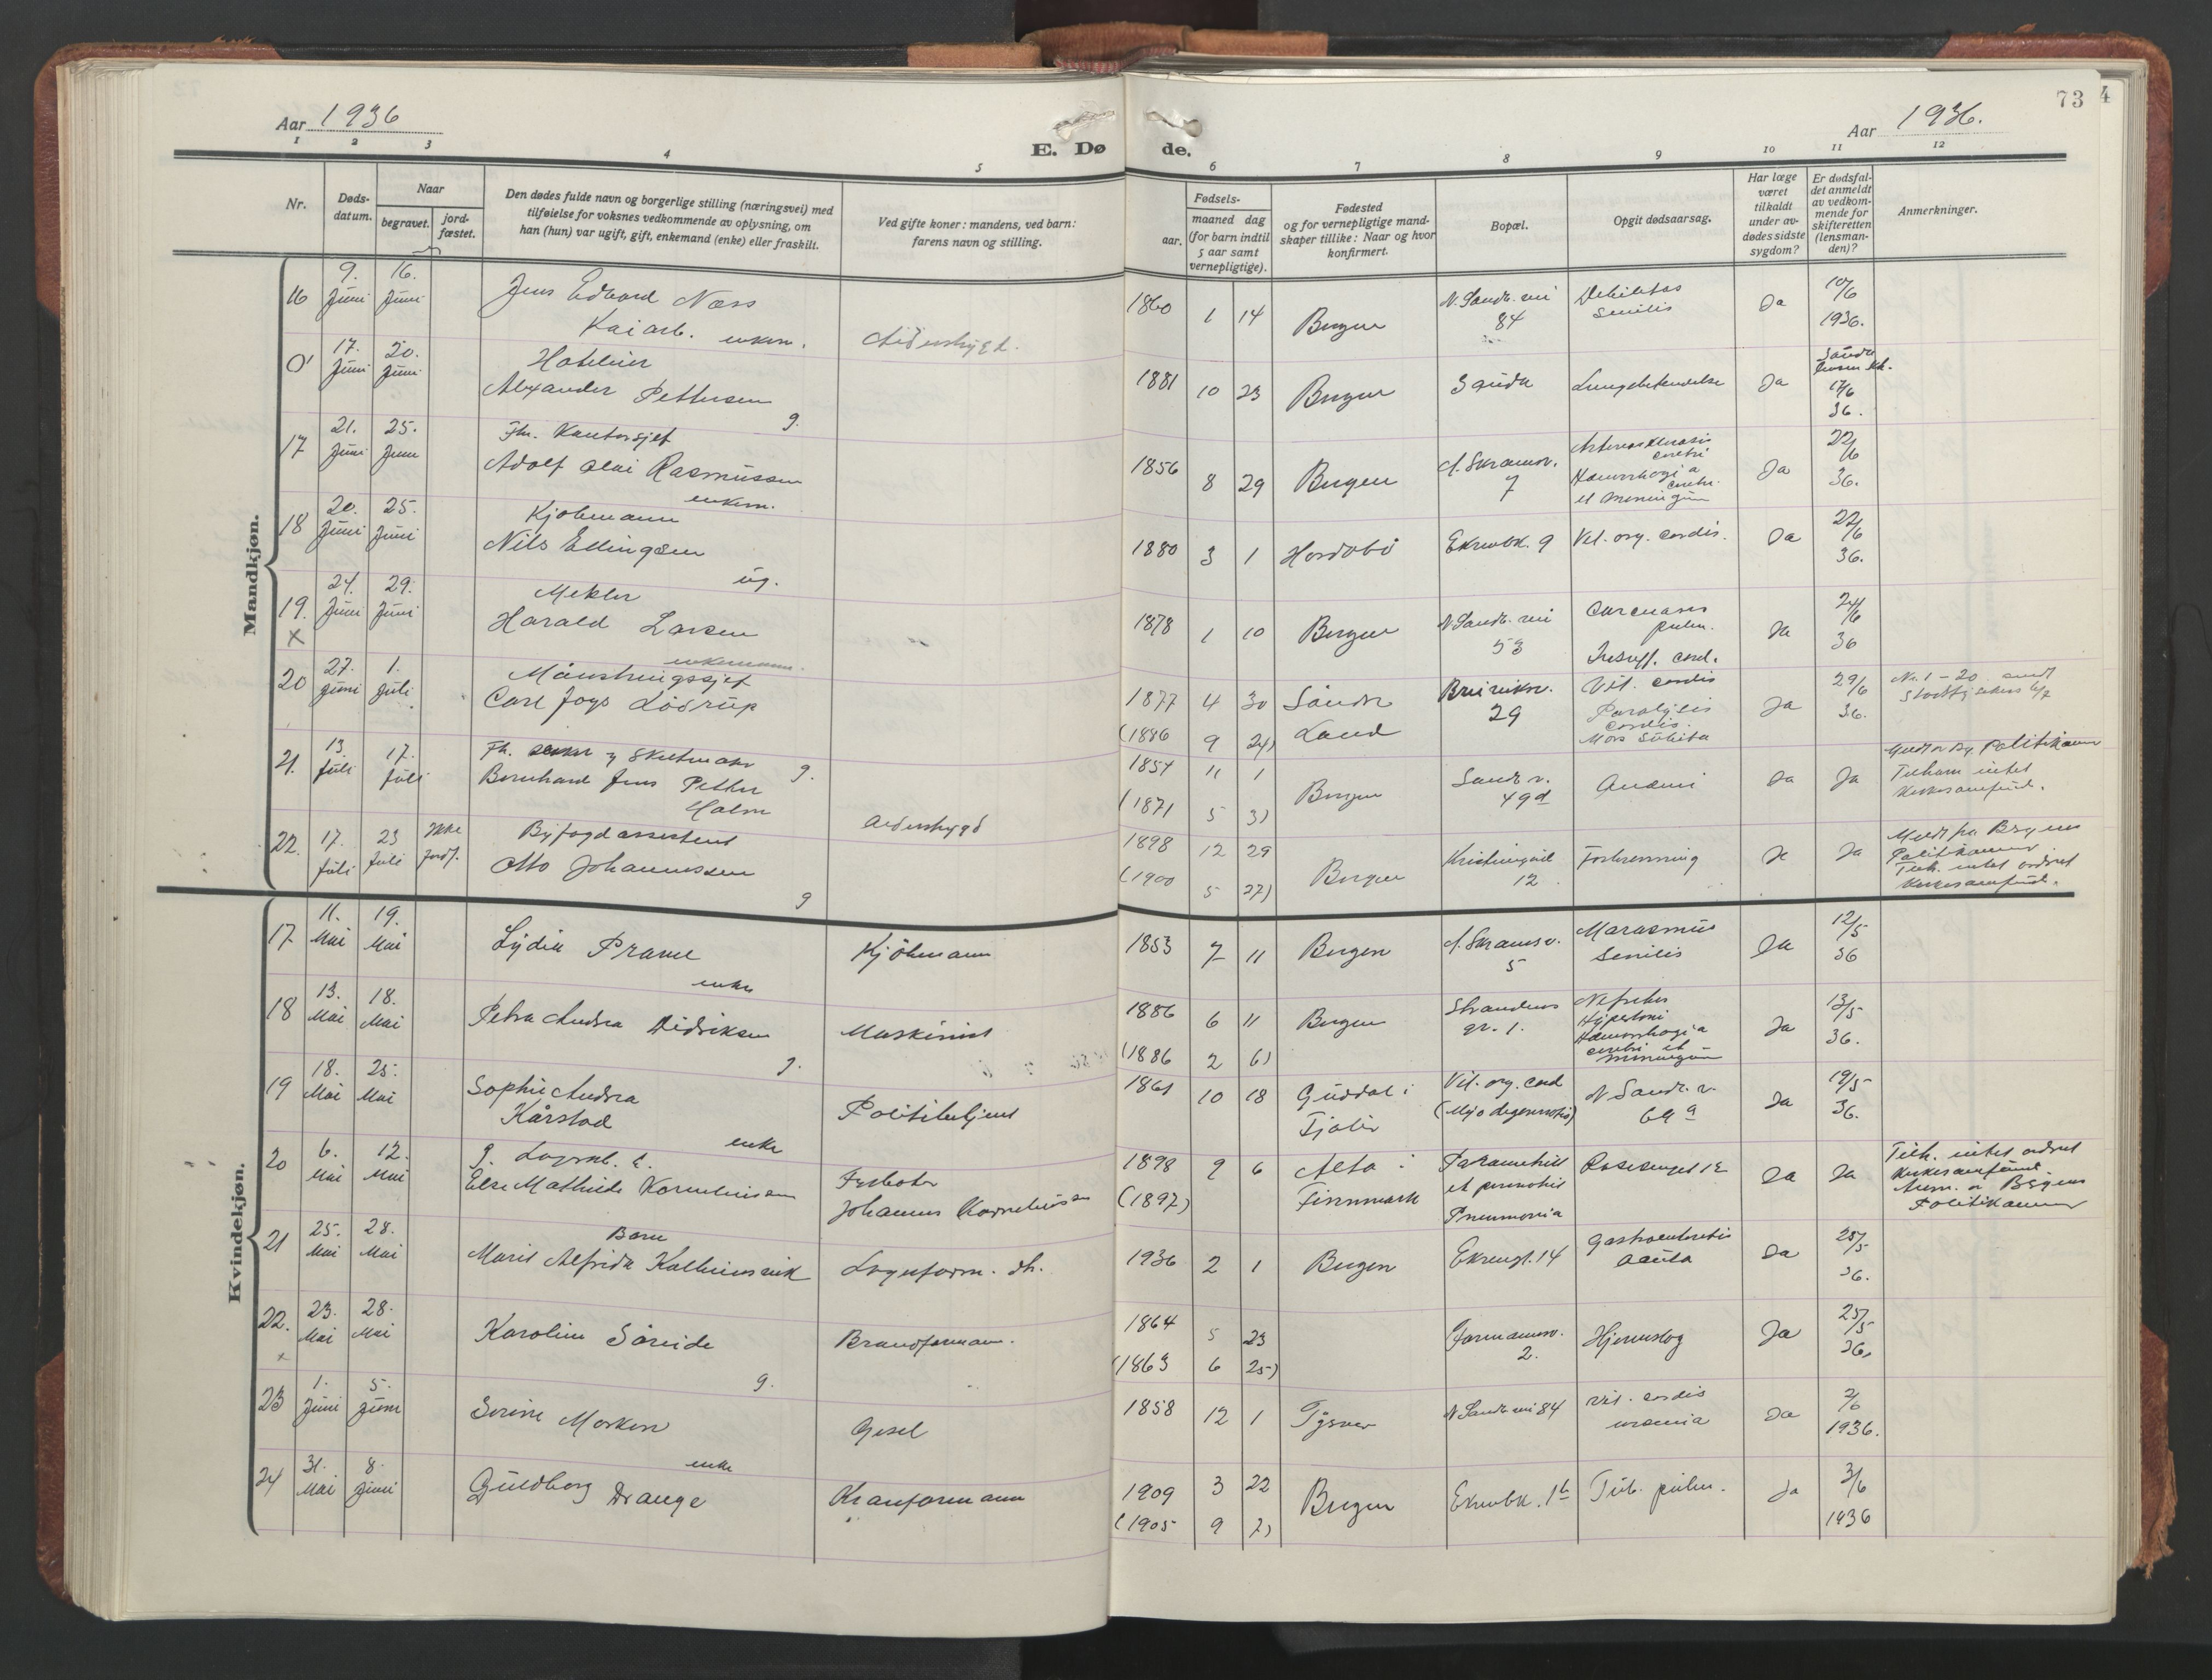 Aar 1936
E. Dø
de.
Aar 1936.
73
4
1 2 3 4 5 6 7 8 9 10 11 12
Nr.
Døds-
datum.
Naar
begravet.
jord-
fæstet.
Den dødes fulde navn og borgerlige stilling (næringsvei) med
tilføielse for voksnes vedkommende av oplysning, om
han (hun) var ugift, gift, enkemand (enke) eller fraskilt.
Ved gifte koner: mandens, ved barn:
farens navn og stilling.
Fødsels-
aar.
maaned dag
(for barn indtil
5 aar samt
vernepligtige).
Fødested
og for vernepligtige mand-
skaper tillike: Naar og hvor
konfirmert.
Bopæl.
Opgit dødsaarsag.
Har læge
været
tilkaldt
under av-
dødes sidste
sygdom?
Er dødsfal-
det anmeldt
av vedkom-
mende for
skifteretten
(lensman-
den)?
Anmerkninger.
Mandkjøn.
16 9. Juni 16. Juni
Jens Edvard Næss
Kaiarb. enkem.
Alderstrygd.
1860 1 14 Bergen
84
Debilitas
senilis
Ja
10/6
1936.
0' 17. Juni 20. Juni
Hoteleier
Alexander Pettersen
g.
1881 10 23 Bergen Sauda Lungebetendelse Ja
17/6
36.
17 21. Juni 25. Juni
Fhv. Kontorsjef
Adolf Olai Rasmussen
enkem.
1856 8 29 Bergen
7
Ja
22/6
36.
18 20. Juni 25. Juni
Kjøbmann
Nils Ellingsen
ug.
1880 3 1 Hordabö Ekrenbk. 9 Vit. org. cordis. Ja
22/6
36.
19. 24. Juni 29. Juni
x
Mekler
Harald Larsen
enkemann.
1878 1 10 Bergen
53
pulm.
Insuff. cord.
Ja
24/6
36
20 27. Juni 1. Juli
Mönstringssjef
Carl Løvrup
1877 4 30
(1886 9 24)
Søndre
Land
29
Vit. cordis
Paralysis
cordis.
Mors subita
Ja
29/6
36.
No. 1 - 20 sendt
21. 13. Juli 17. Juli
Bernhard Jens Petter
Holm
g.
Alderstrygd
1854 11 1
(1871 5 3)
Bergen
Sandv. v.
49d
Anæmi Ja Ja
Politikammer
22. 17. Juli 23 Juli Ikke jordf.
Byfogdassistent
Otto Johannessen
g
1898 12 29
(1900 5 27)
Bergen
12
Forbrenning Ja Ja
Meldt fra Bergens
Politikammer
Kvindekjøn.
17 11. Mai 19. Mai
Lydia Prahl
enke
Kjöbmann
1853 7 11 Bergen
5
Marasmus
senilis
Ja
12/5
36
18 13. Mai 18. Mai
Petra Andrea Didriksen
g.
Maskinist
1886 6 11
(1886 2 6)
Bergen
gt. 1.
Hypertoni
Hæmorrhagia
cerebri et
meningum
Ja
13/5
36.
19 18. Mai 25. Mai
Sophie Andrea
Kårstad
enke
Politibetjent
1861 10 18
Guddal i
Fjaler
Vit. org. cord
(Myodegeneratio)
N Sandv. v.
69 a
Ja
19/5
36.
20 6. Mai 12. Mai
Else Mathilde Korneliussen
Fyrböter
Johannes Korneliussen
1898 9 6
(1897)
Alta i
Finnmark
et peritonitis
Pneumonia
Ja Ja
Politikammer
21 25. Mai 28. Mai
Barn
Marit Alfride
1936 2 1 Bergen Ekrengt. 14
Gastroenteritis
acuta
Ja
25/5
36.
22. 23. Mai 28. Mai
x
Karoline Søreide
g.
Brandformann.
1864 5 23
(1863 6 25)
Formannsv.
2.
Hjerneslag Ja
25/5
36.
23 1. Juni 5. Juni
Serine Morken
enke
Gesel
1858 12 1 Tysvær N Sandv. vei 84
Vit. cordis
uræmia
Ja
2/6
1936.
24 31. Mai 8. Juni
Guldborg Drange
Kranformann
1909 3 22
(1905 9 2)
Bergen Ekrenbk. 1b Tub. pulm. Ja
3/6
1936